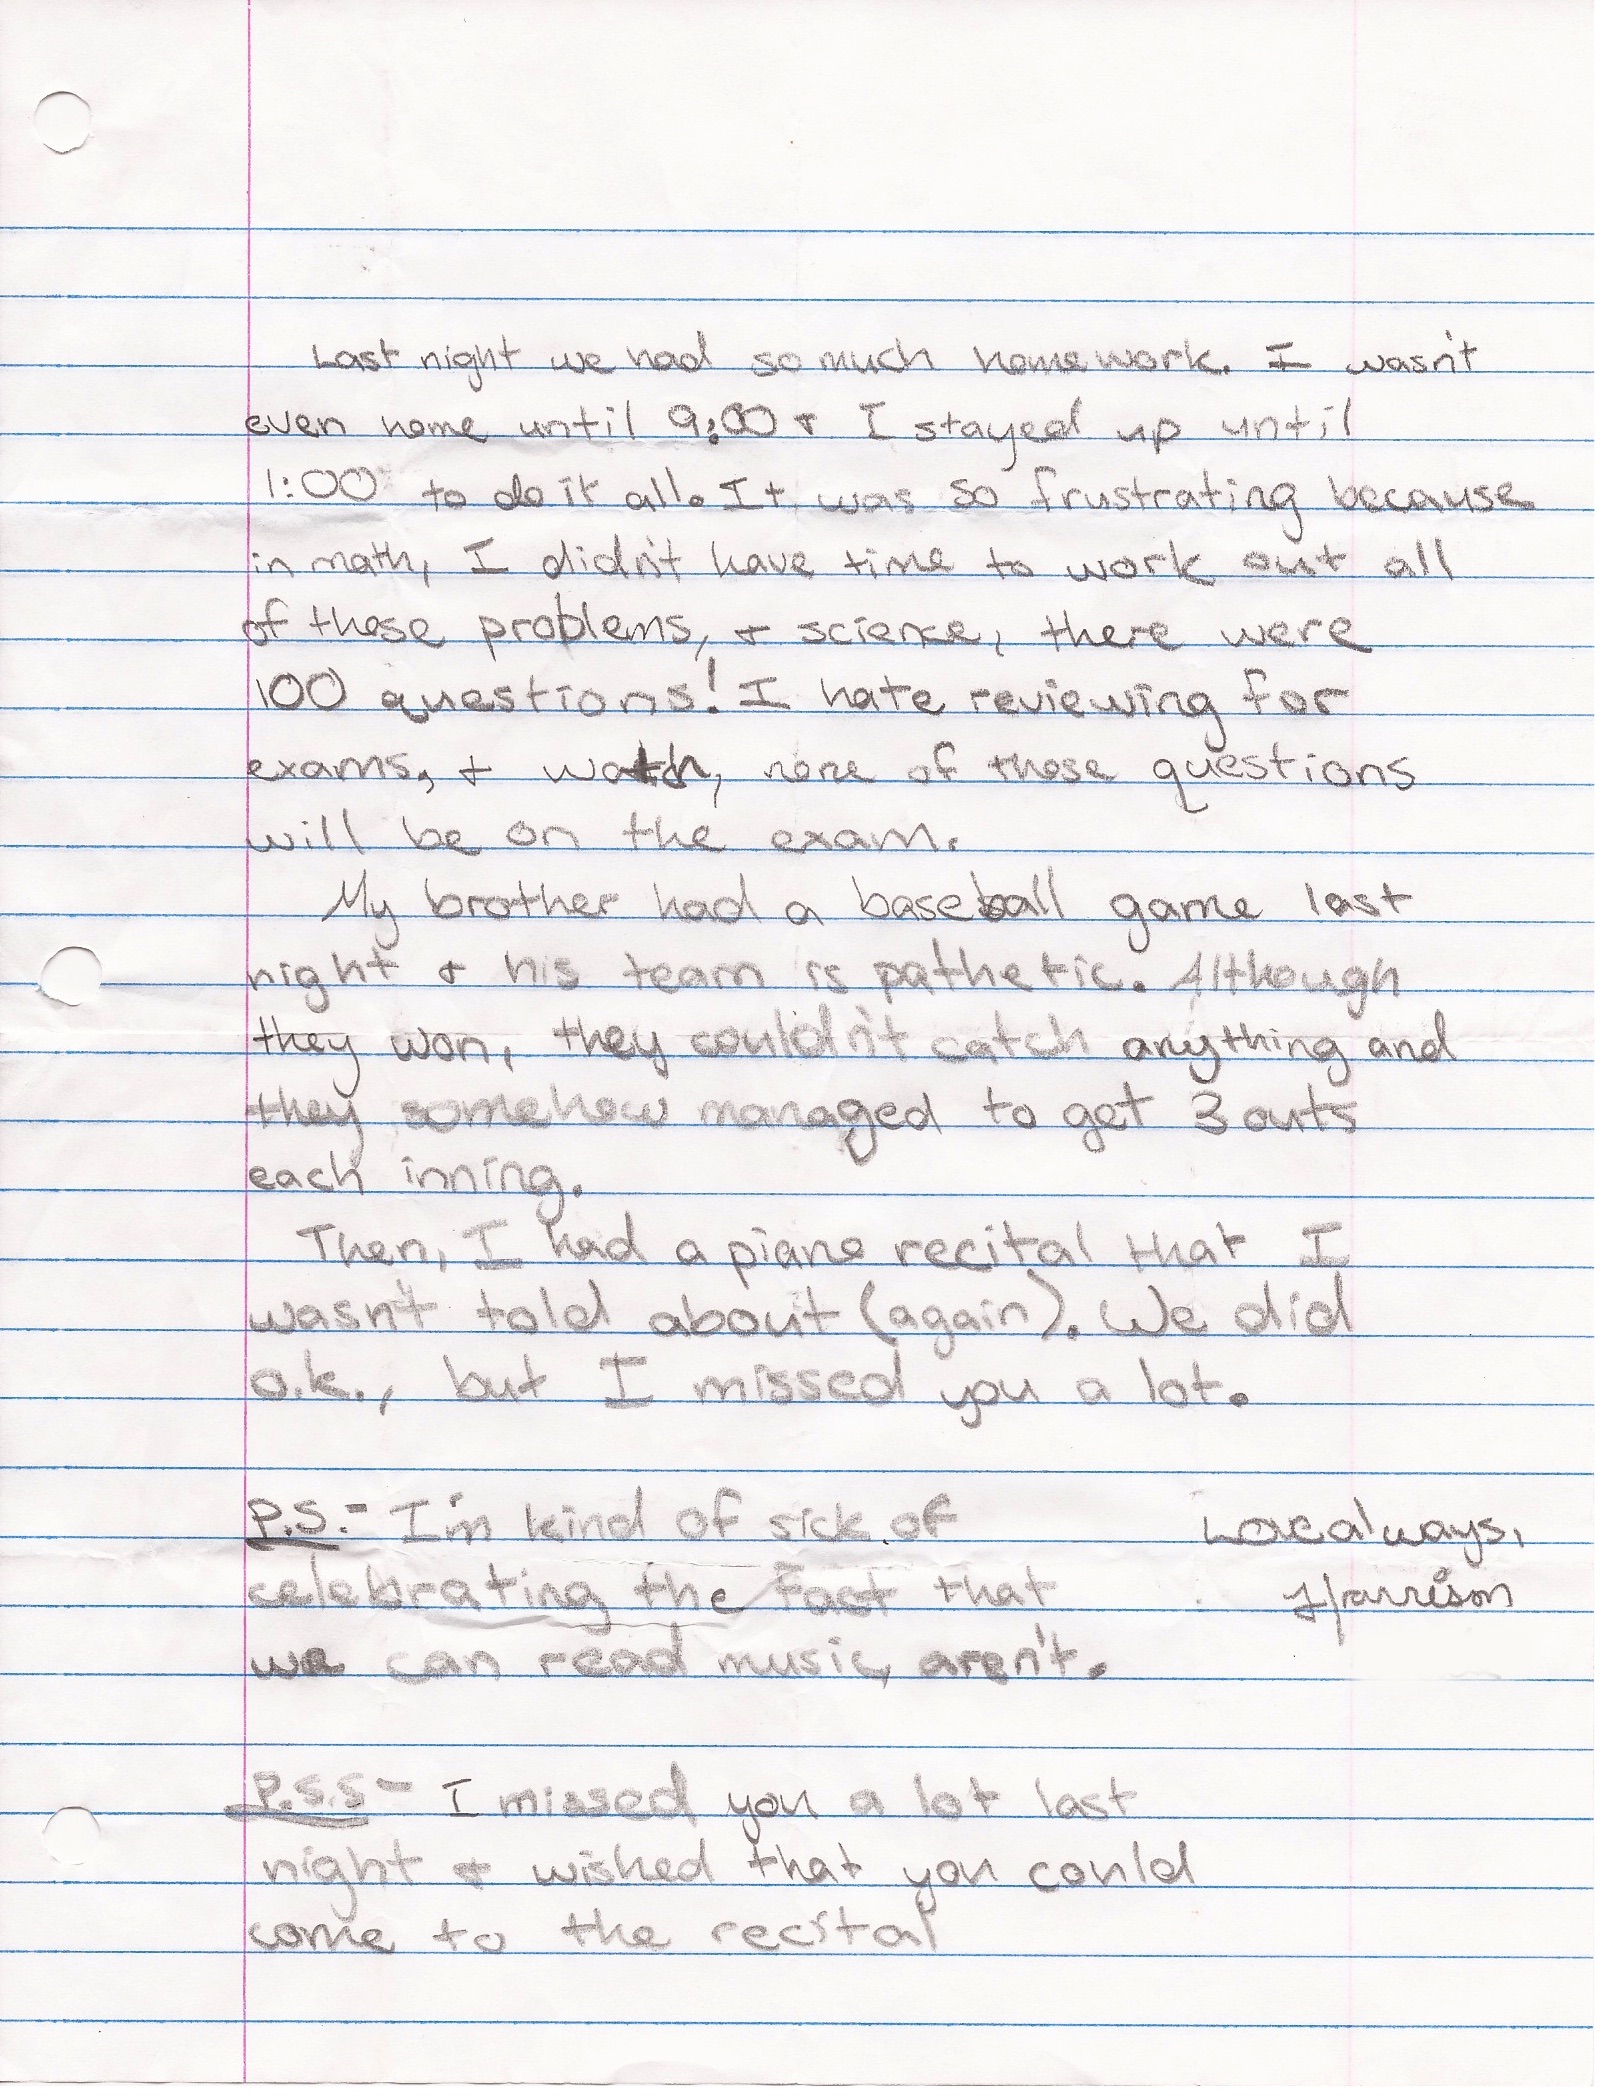 Last night we had so much homework. I wasn't
even home until 9:00 & I stayed up until
1:00 to do it all. It was so frustrating because
in math, I didn't have time to work out all
of those problems, & science, there were
100 questions! I hate reviewing for
exams, & watch, none of those questions
will be on the exam.
My brother had a baseball game last
night & his team is pathetic. Although
they won, they couldn't catch anything and
they somehow managed to get 3 outs
each inning.
Then, I had a piano recital that I
wasn't told about (again). We did
o.k., but I missed you a lot.
P.S.- I'm kind of sick of
celebrating the fact that
we can read music, aren't.
Love always,
Harrison
P.S.S- I missed you a lot last
night & wished that you could
come to the recital